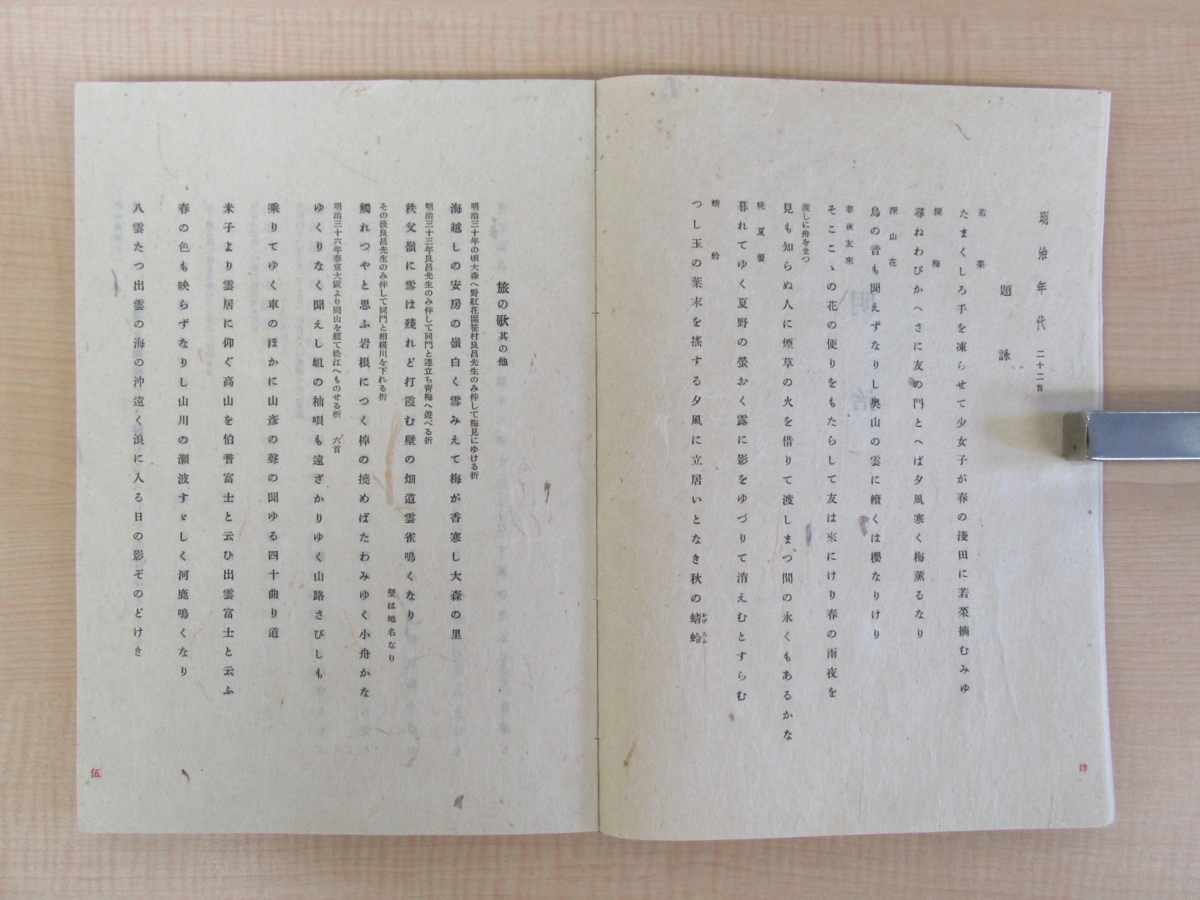 明治年代 二十二首
題詠
若菜
たまくしろ手を凍らせて少女子が春の淺田に若菜摘むみゆ
探梅
尋ねわびかへさに友の門とへば夕風寒く梅薫るなり
深山花
鳥の音も聞えずなりし奥山の雲に續くは櫻なりけり
春夜友來
そここゝの花の便りをもたらして友は來にけり春の雨夜を
渡しに舟をまつ
見も知らぬ人に煙草の火を借りて渡しまつ間の永くもあるかな
晩夏螢
暮れてゆく夏野の螢おく露に影をゆづりて消えむとすらむ
蜻蛉
つし玉の葉末を搖する夕風に立居いとなき秋の蜻蛉
肆
旅の歌 其の他
明治三十年の頃大森へ野紅花園笹村良昌先生のみ伴して梅見にゆける折
海越しの安房の嶺白く雪みえて梅が香寒し大森の里
明治三十三年良昌先生のみ伴して同門と連立ち青梅へ遊べる折
秩父嶺に雪は殘れど打霞む壁の畑道雲雀鳴くなり
壁は地名なり
その後良昌先生のみ伴して同門と相模川を下れる折
觸れつやと思ふ岩根につく棹の撓めばたわみゆく小舟かな
明治三十六年春京大阪より岡山を經て松江へものせる折 六首
ゆくりなく聞えし組の杣唄も遠ざかりゆく山路さびしも
乘りてゆく車のほかに山彦の聲の聞ゆる四十曲り道
米子より雲居に仰ぐ高山を伯耆富士と云ひ出雲富士と云ふ
春の色も映らずなりし山川の瀬波すゞしく河鹿鳴くなり
八雲たつ出雲の海の沖遠く浪に入る日の影ぞのどけき
伍